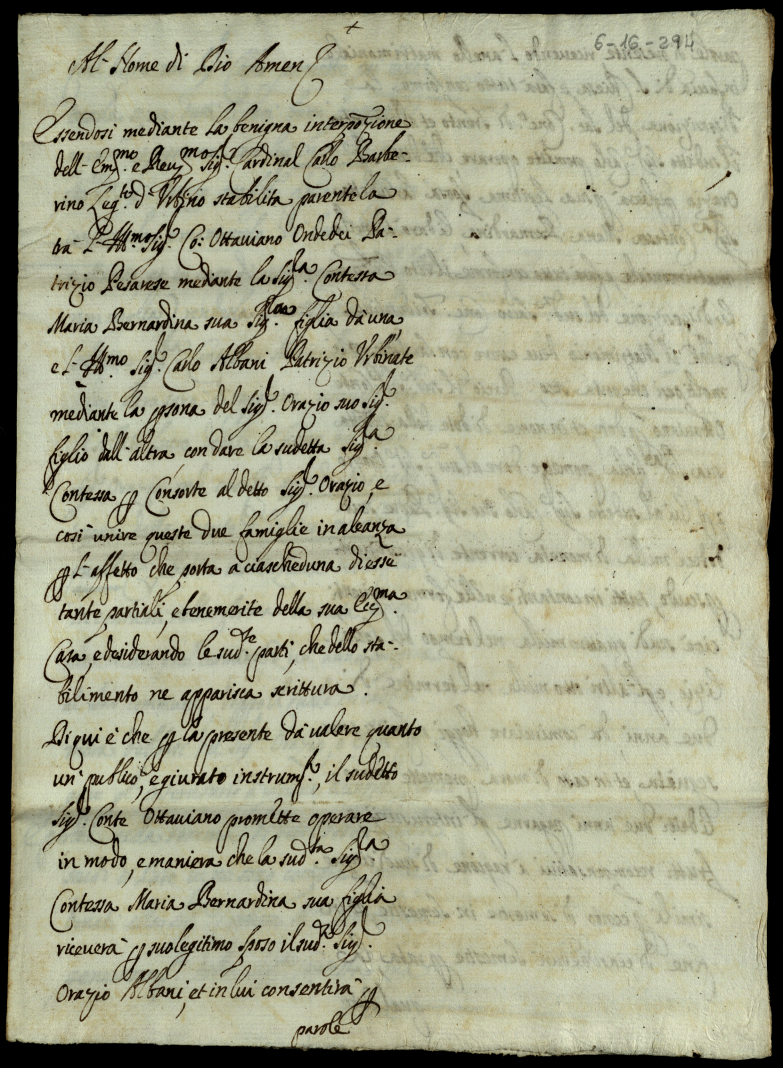 +
6-16-294
Al Nome di Dio Amen
Essendosi mediante la benigna interpozione
dell Emmo. e Reumo sigr. Cardinal Carlo Barbe-
rino Legto. d Urbino stabilita parentela
tra l Illmo. sigr. Co: Ottauiano Ondedei Pa-
trizio Pesarese mediante la sigra. Contessa
Maria Bernardina sua figlia da una,
e l Illmo sigr. Carlo Albani Patrizio Vrbinate
mediante la psona del sigr. Orazio suo sigr.
figlio dall altra, con dare la sudetta sigra.
Contessa p Consorte al detto sigr. Orazio, e
cosi unire queste due famiglie in aleanza
p l affetto che porta a ciascheduna di esse
tante partiali, e benemerite della sua
Casa, e desiderando le sudte. parti, che dello sta-
bilimento ne apparisca scrittura.
Di qui è che p la presente da valere quanto
un publico, e giurato instrumto., il sudetto
sigr. Conte Ottauiano promette operare
in modo, e maniera che la sudta. sigra
Contessa Maria Bernardina sua figlia
riceverà p suo legitimo sposo il sudto. sigr.
Orazio Albani, et in lui consentirà p
parole